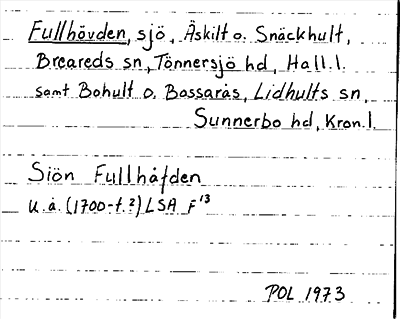 Fullhövden, sjö, Äskilt o. Snäckhult,
Breareds sn, Tönnersjö hd, Hall.l.
samt Bohult o. Bassarås, Lidhults sn,
Sunnerbo hd, Kron.l.
Siön Fullhåfden
U.å. (1700-t.?) LSA F¹³
POL 1973